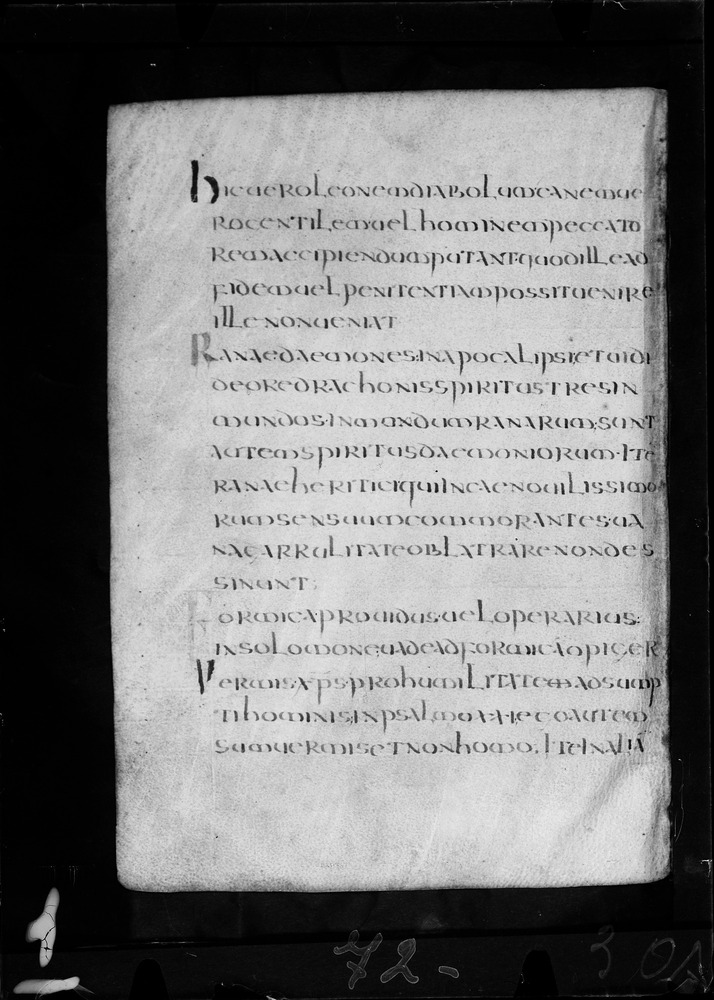 hic uero leonem diabolum canem ue
ro gentilem uel hominem peccato
rem accipiendum putant quod ille ad
fidem uel penitentiam possit uenire
ille non ueniat
Ranae daemones; in apocalipsi et uidi
de ore drachonis spiritus tres in
mundos· in modum ranarum; sunt
autem spiritus daemoniorum· ite
ranae heretici qui in caeno uilissimo
rum sensuum commorantes· ua
na garrulitate oblatrare non des
sinunt;
Formica prouidus uel operarius:
in solomone; uade ad formica o piger
Vermis xps pro humilitatem adsump
ti hominis; in psalmo· ego autem
sum uermis et non homo. ite in alia
72-